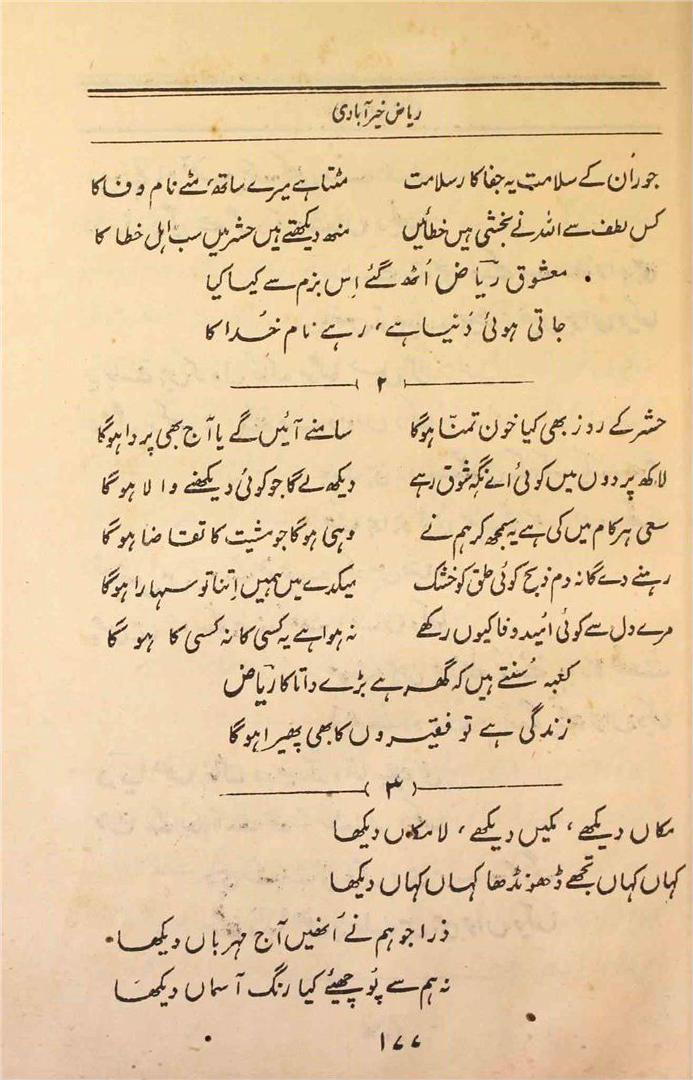 ریاض خیرآبادی
جور اُن کے سلامت یہ جفا کار سلامت مٹتا ہے میرے ساتھ، مٹے نام وفا کا
کس لطف سے اللہ نے بخشی ہیں خطائیں منھ دیکھتے ہیں حشر میں سب اہل خطا کا
معشوق ریاض اُٹھ گئے اِس بزم سے کیا کیا
جاتی ہوئی دُنیا ہے، رہے نام خُدا کا
۲
حشر کے روز بھی کیا خون تمنّا ہوگا سامنے آئیں گے یا آج بھی پردا ہوگا
لاکھ پردوں میں کوئی اے نگہِ شوق رہے دیکھ لے گا جو کوئی دیکھنے والا ہوگا
سعی ہر کام میں کی ہے یہ سمجھ کر ہم نے وہی ہوگا جو مشیت کا تقاضا ہوگا
رہنے دے گا نہ دم ذبح کوئی حلق کو خشک میکدے میں ہمیں اِتنا تو سہارا ہوگا
مرے دل سے کوئی اُمید وفا کیوں رکھے نہ ہوا ہے یہ کسی کا نہ کسی کا ہوگا
کعبہ سُنتے ہیں کہ گھر ہے بڑے داتا کا ریاض
زندگی ہے تو فقیروں کا بھی پھیرا ہوگا
۳
مکاں دیکھے، مکیں دیکھے، لامکاں دیکھا
کہاں کہاں تجھے ڈھونڈھا کہاں کہاں دیکھا
ذرا جو ہم نے اُنھیں آج مہرباں دیکھا
نہ ہم سے پُوچھیئے کیا رنگ آسماں دیکھا
۱۷۷